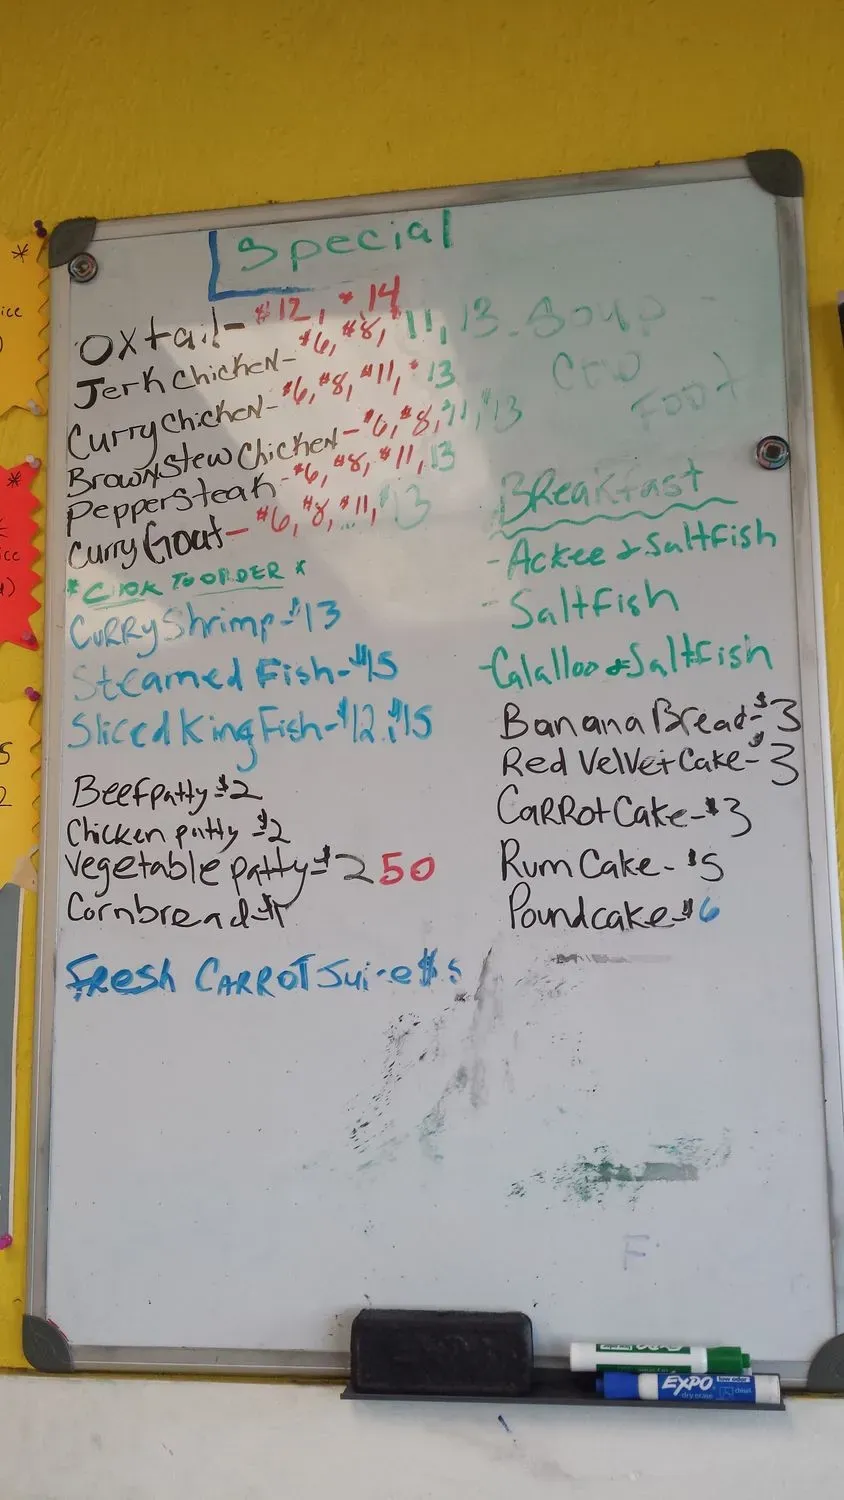 Special
Oxtail- $12, $14
Jerk Chicken- $6, $8, $11, 13
Curry Chicken- $6, $8, $11, $13
Brown Stew Chicken- $6, $8, $11, $13
Pepper Steak- $6, $8, $11, 13
Curry Goat- $6, $8, $11, $13
*COOK TO ORDER*
Curry Shrimp-$13
Steamed Fish-$15
Sliced King Fish-$12, $15
Beef patty-$2
Chicken patty $2
Vegetable patty-$250
Cornbread-$1
Fresh CARROT Juice $5
Soup
Cow
Foot
Breakfast
- Ackee & Saltfish
- Saltfish
- Calalloo & Saltfish
Banana Bread-$3
Red Velvet Cake-$3
Carrot Cake-$3
Rum Cake- $5
Pound cake-$6
F
EXPO
low odor
dry erase
chisel